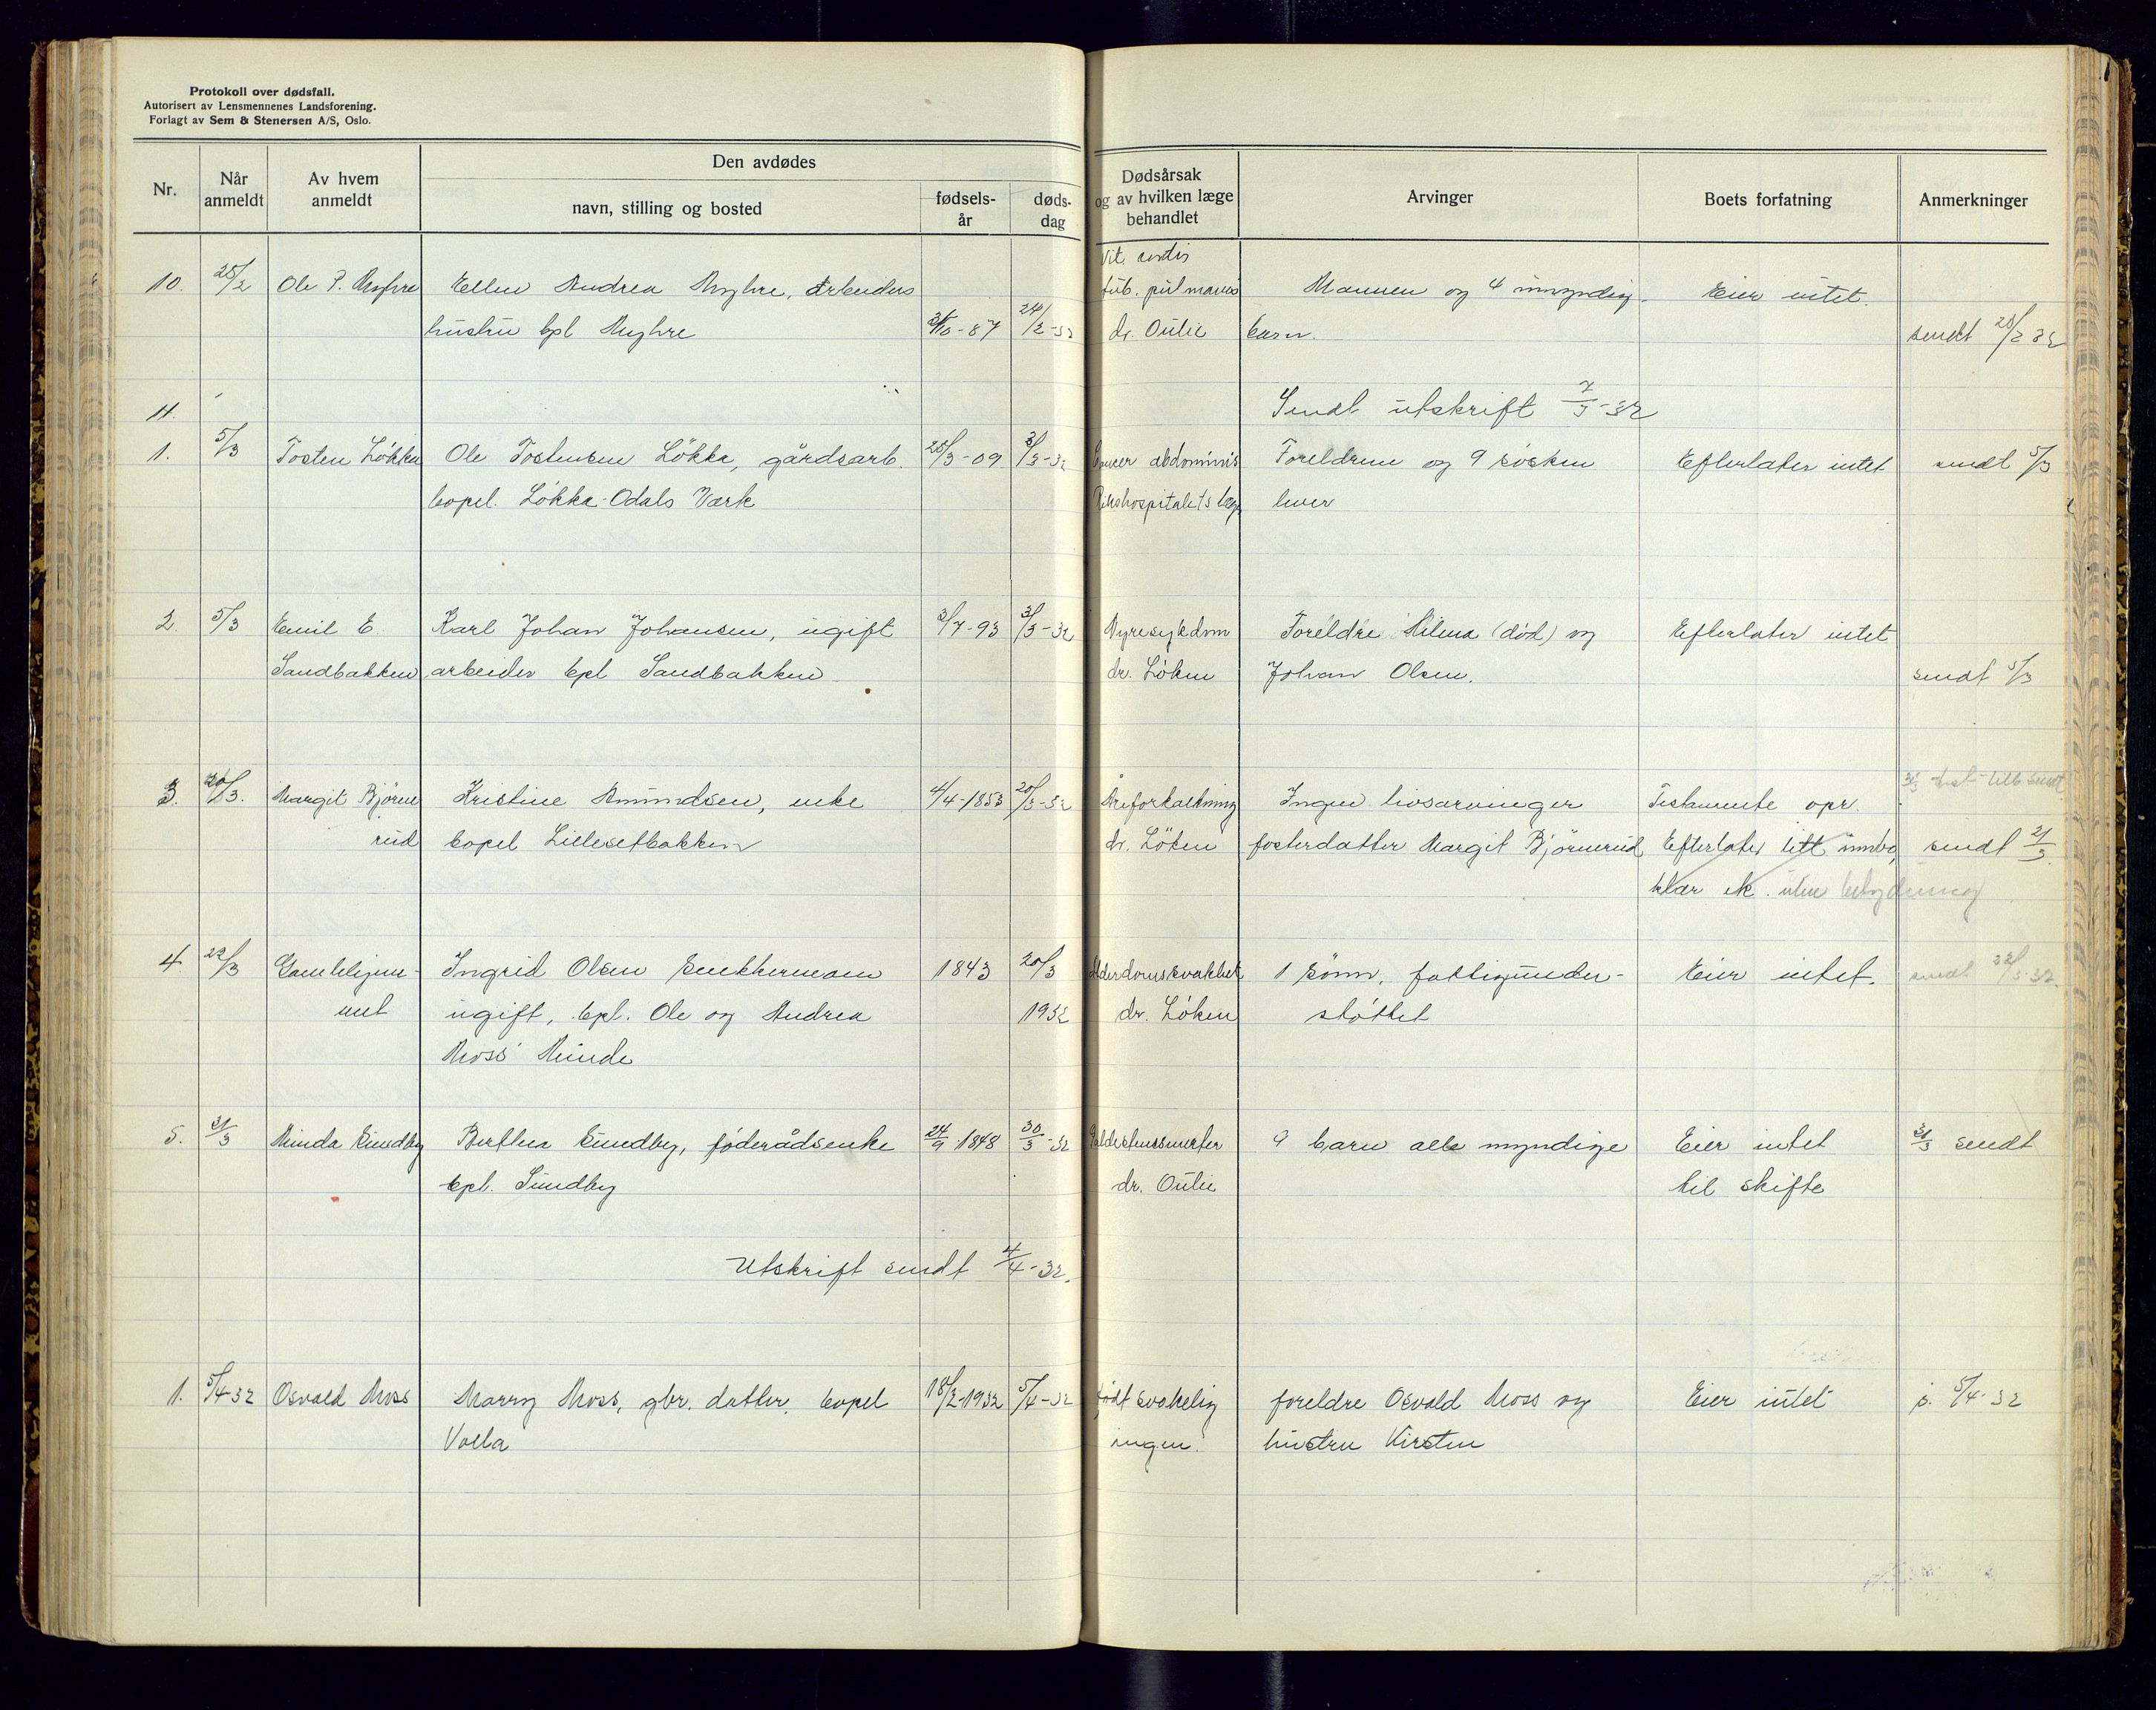 Protokoll over dødsfall.
Autorisert av Lensmennenes Landsforening.
Forlagt av Sem & Stenersen A/S, Oslo.
Nr.
Når anmeldt
Av hvem anmeldt
Den avdødes
navn, stilling og bosted
fødsels-år
døds-dag
Dødsårsak og av hvilken læge behandlet
Arvinger
Boets forfatning
Anmerkninger
10. 25/2 Ole P. Myhre Ellen Andrea Myhre, arbeiders Vit. cordis tub. pulmonis Mannen og 4 umyndig. Eier intet.
hustru bpl Myhre /10-87 24/2-32 dr. Oulie barn. sendt 25/2 32
11. Sendt utskrift 7/3-32
1. 5/3 Tosten Løkka Ole Tostensen Løkka, gårdsarb. 25/3-09 3/3-32 Cancer abdominis Foreldrene og 9 søsken Efterlater intet sendt 5/3
bopel. Løkka-Odals Værk Rikshospitalets læge lever
2. 5/3 Emil E. Karl Johan Johansen, ugift 3/7-93 3/3-32 Nyresykdom Foreldre Hilma (død) og Efterlater intet
Sandbakken arbeider bpl Sandbakken dr. Løken Johan Olsen. sendt 5/3
3. 20/3. Margit Bjørne Kristine Amundsen, enke 4/4-1853 20/3-32 Åreforkalkning Ingen livsarvinger Testamente opr. sendt
rud bopel Lillesetbakken dr. Løken fosterdatter Margit Bjørnerud Efterlater litt innbo, sendt 21/3
klær ek. uten betydning
4. 22/3 Gamlehjem- Ingrid Olsen Enkhermoen 1843 20/3 Alderdomsvakhet 1 sønn, fattigunder- Eier intet. sendt 22/3-32.
met ugift, bpl. Ole og Andrea 1932 dr. Løken støttet
Moss Minde
5. 31/3 Minda Sundby Berthea Sundby, føderådsenke 24/9-1848 30/3-32 Galdestenssmerter 9 barn alle myndige Eier intet 31/3 sendt
bpl. Sundby dr. Oulie til skifte
Utskrift sendt 4/4-32.
1. 5/4-32 Osvald Moss Marry Moss, gbr. datter, bopel 18/2-1932 5/4-32 født svakelig foreldre Osvald Moss og Eier intet s. 5/4-32
Volla ingen. hustru Kirsten